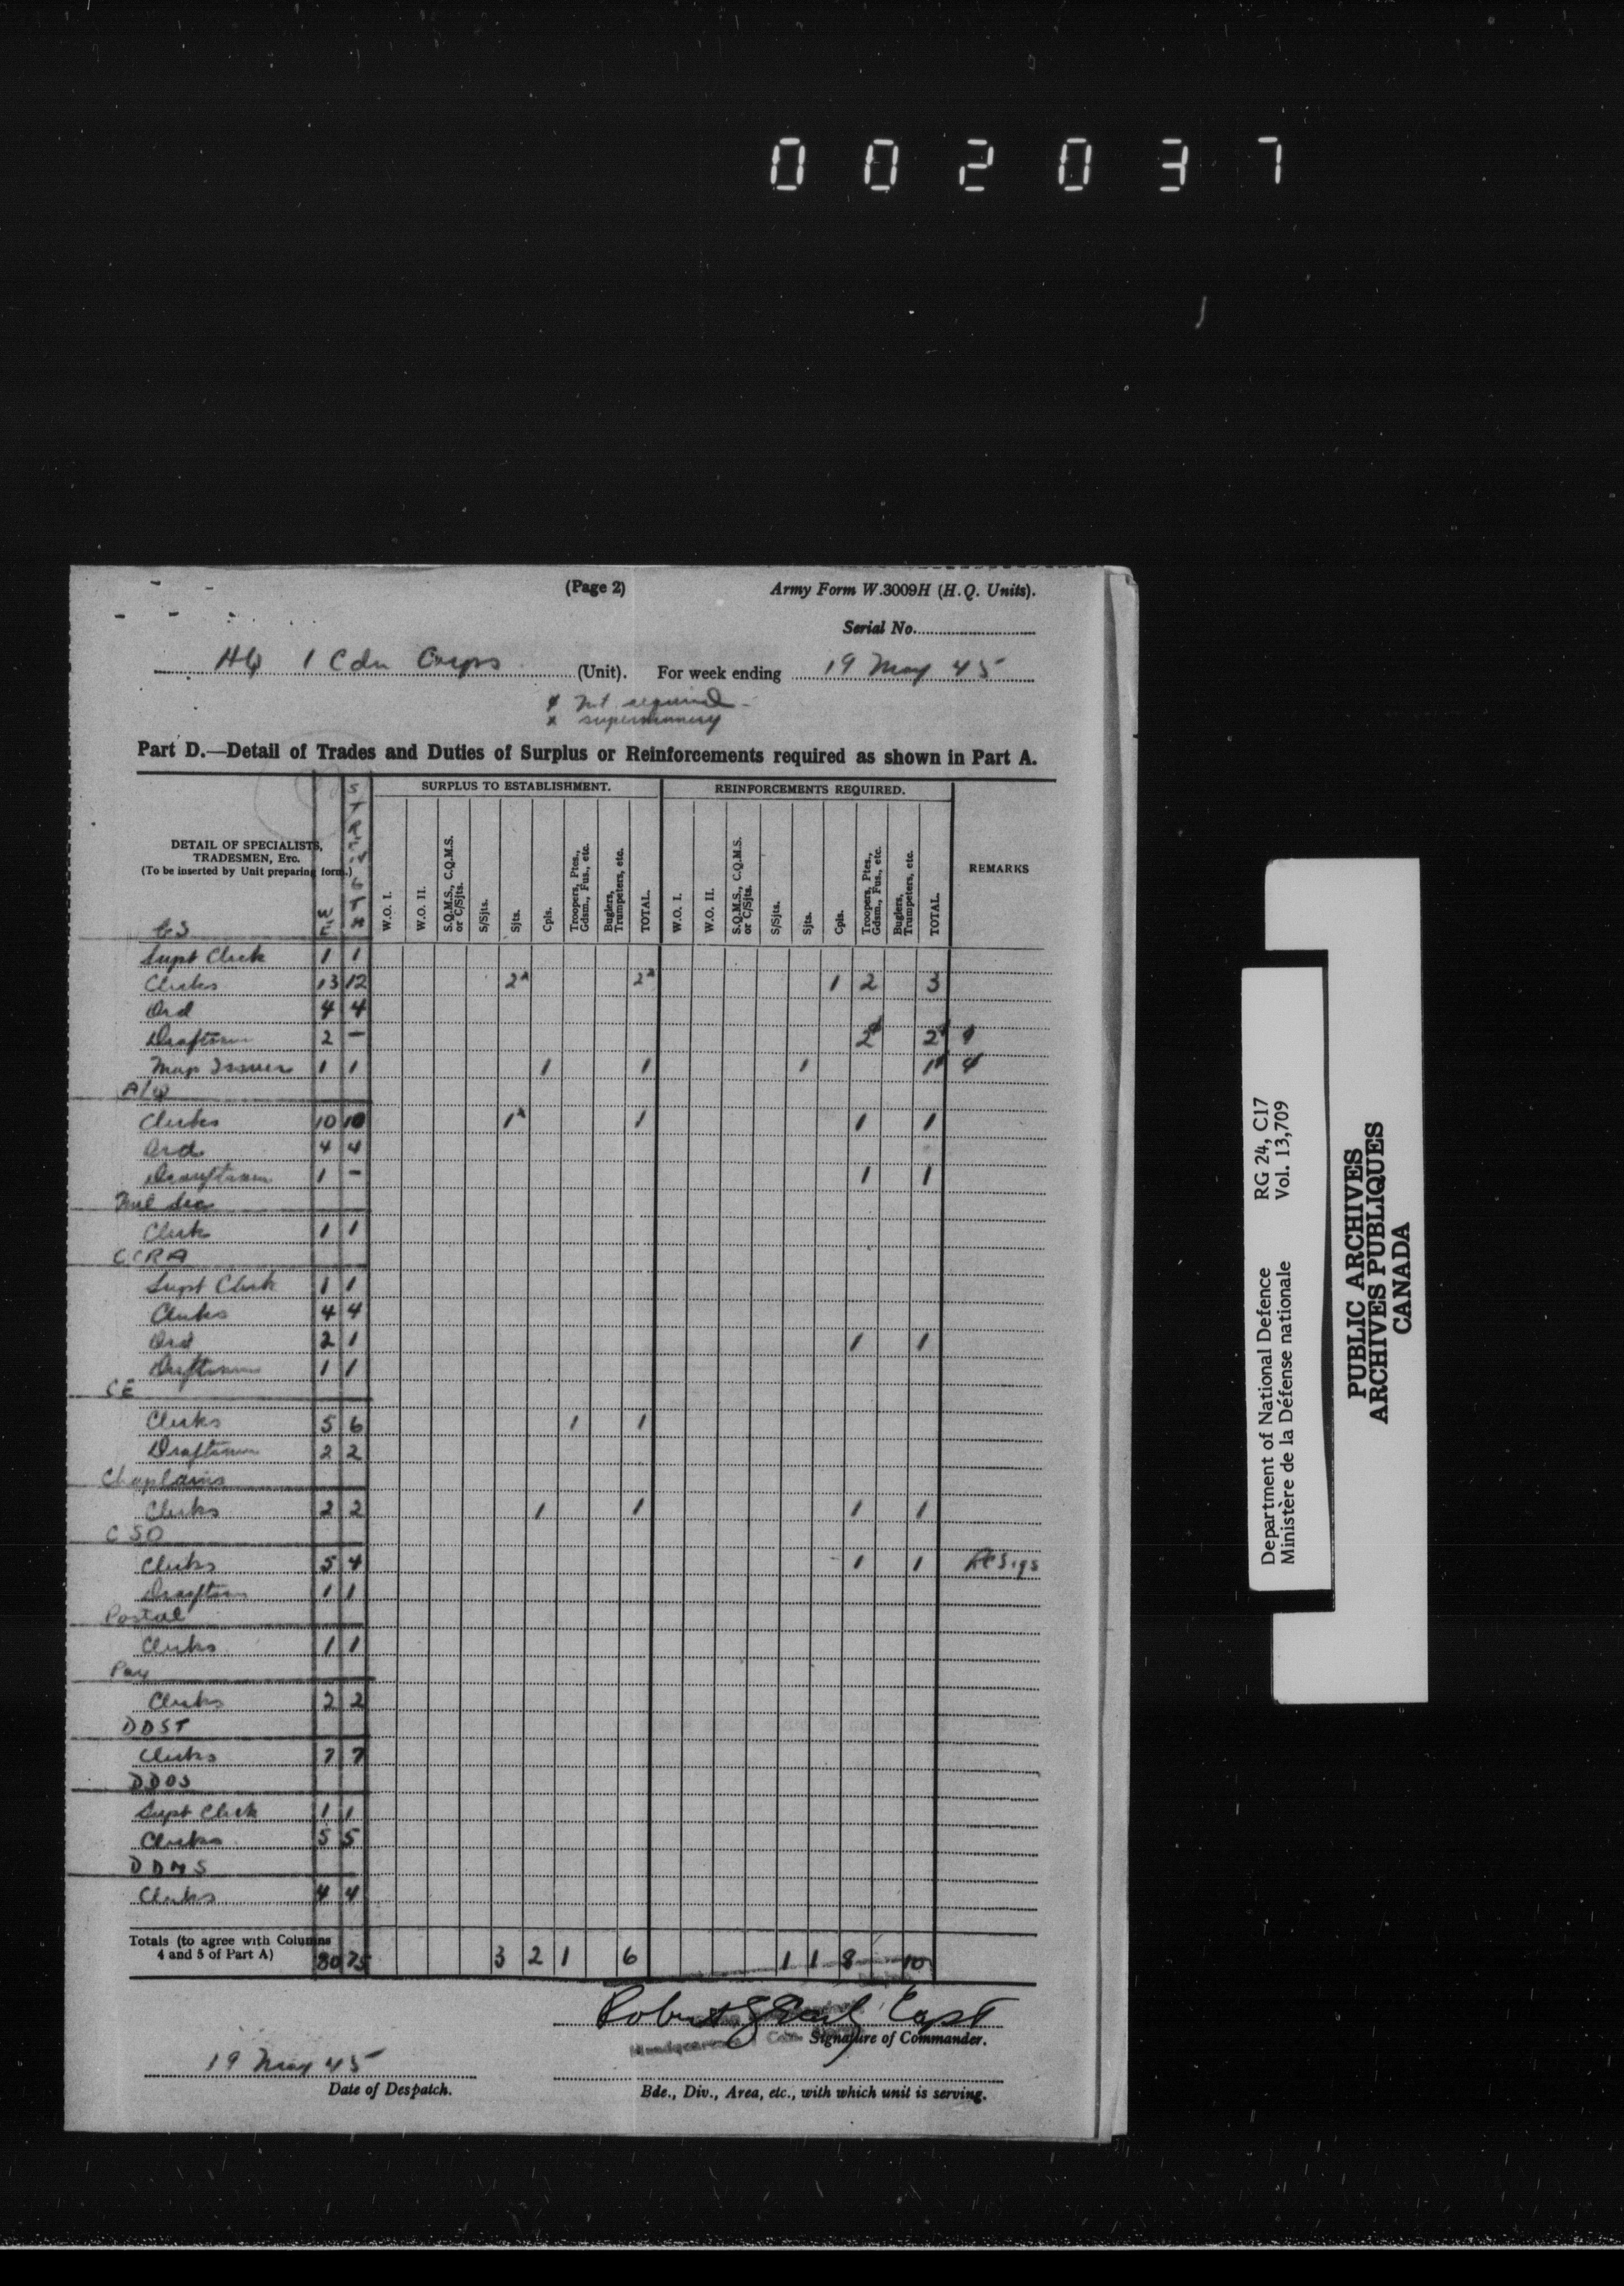 002037
(Page 2)
Army Form W.3009H (H.Q. Units).
Serial No.
HQ 1 Cdn Corps (Unit). For week ending 19 May 45
Not required
x supernumery
Part D.—Detail of Trades and Duties of Surplus or Reinforcements required as shown in Part A.
DETAIL OF SPECIALISTS, TRADESMEN, Etc.
(To be inserted by Unit preparing form.)
W E
STRENGTH
SURPLUS TO ESTABLISHMENT.
W.O. I.
W.O. II.
S.Q.M.S., C.Q.M.S. or C/Sjts.
S/Sjts.
Sjts.
Cpls.
Troopers, Ptes., Gdsm., Fus., etc.
Buglers, Trumpeters, etc.
TOTAL.
REINFORCEMENTS REQUIRED.
W.O. I.
W.O. II.
S.Q.M.S., C.Q.M.S. or C/Sjts.
S/Sjts.
Sjts.
Cpls.
Troopers, Ptes., Gdsm., Fus., etc.
Buglers, Trumpeters, etc.
TOTAL.
REMARKS
GS
Supt Clerk 1 1
Clerks 13 12 2x 2x 1 2 3
Ord 4 4
Draftsmen 2 - 2 2
Map Issuers 1 1 1 1 1 1
A/Q
Clerks 10 10 1x 1 1 1
Ord 4 4
Draughtsmen 1 - 1 1
Clerk 1 1
CCRA
Supt Clerk 1 1
Clerks 4 4
Ord 2 1 1 1
Draftsmen 1 1
CE
Clerks 5 6 1 1
Draftsmen 2 2
Chaplains
Clerks 2 2 1 1 1 1
CSO
Clerks 5 4 1 1 RC Sigs
Draftsm 1 1
Postal
Clerks 1 1
Pay
Clerks 2 2
DDST
Clerks 7 7
DDOS
Supt Clerk 1 1
Clerks 5 5
DDMS
Clerks 4 4
Totals (to agree with Columns 4 and 5 of Part A) 80 75 3 2 1 6 1 1 8 10
Capt
Signature of Commander.
19 May 45
Date of Despatch.
Bde., Div., Area, etc., with which unit is serving.
Department of National Defence RG 24, C17
Ministère de la Défense nationale Vol. 13,709
PUBLIC ARCHIVES
ARCHIVES PUBLIQUES
CANADA